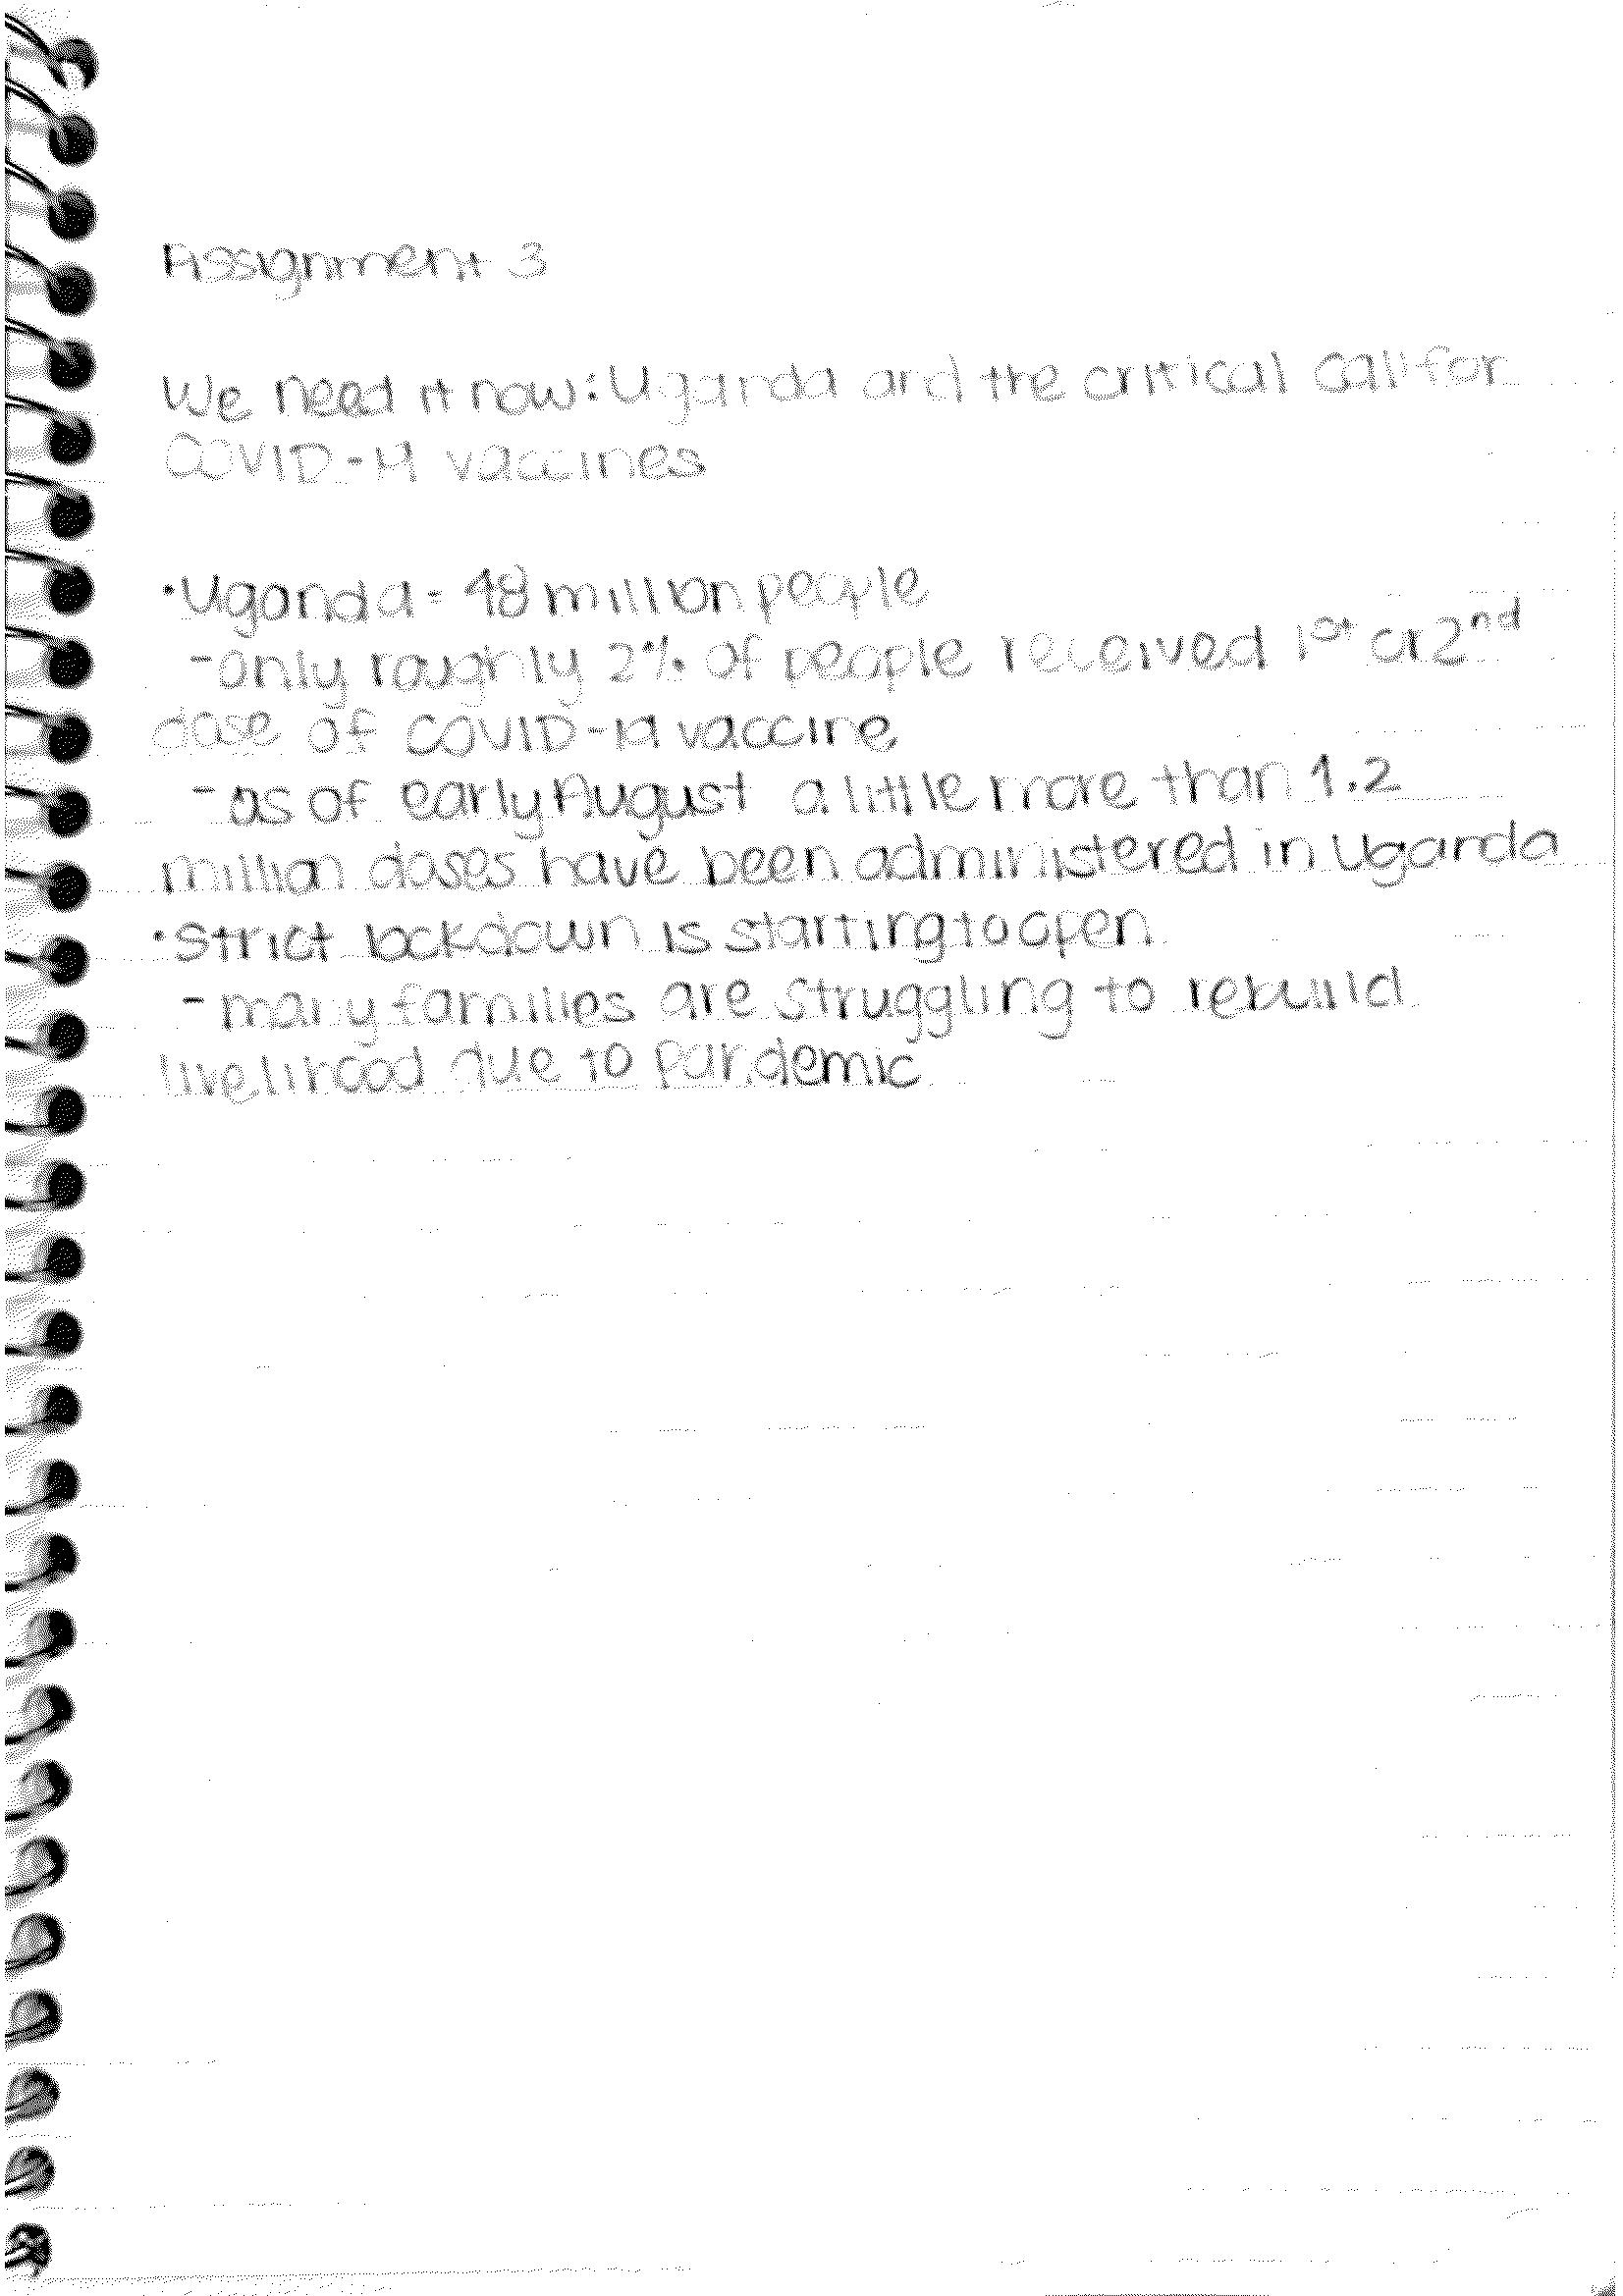 Assignment 3
We need it now: Uganda and the critical call for
COVID-19 vaccines
• Uganda = 48 million people
- only roughly 2% of people received 1st or 2nd
dose of COVID-19 vaccine
- as of early August a little more than 1.2
million doses have been administered in Uganda
• Strict lockdown is starting to open
- many families are struggling to rebuild
livelihood due to pandemic